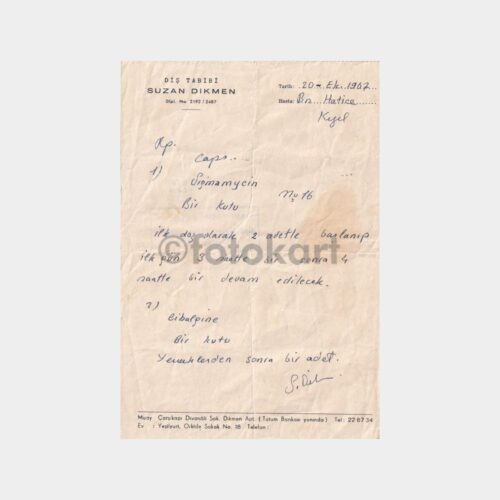 DİŞ TABİBİ
SUZAN DİKMEN
Dipl. No 2192/2687
Tarih: 20. Ek. 1967
Hasta: Bn. Hatice
Rp.
1) Caps...
Sigmamycin
Bir kutu No 16
ilk doz olarak 2 adetle başlanıp
ilk gün 3 saatte bir sonra 4
saatte bir devam edilecek.
2)
Cibalgine
Bir kutu
Yemeklerden sonra bir adet.
©fotokart
Muay Çarşıkapı Divanıâli Sok. Dikmen Apt. (Tütüm Bankası yanında) Tel: 22 87 34
Ev : Yeşilyurt, Orkide Sokak No. 18 Telefon: